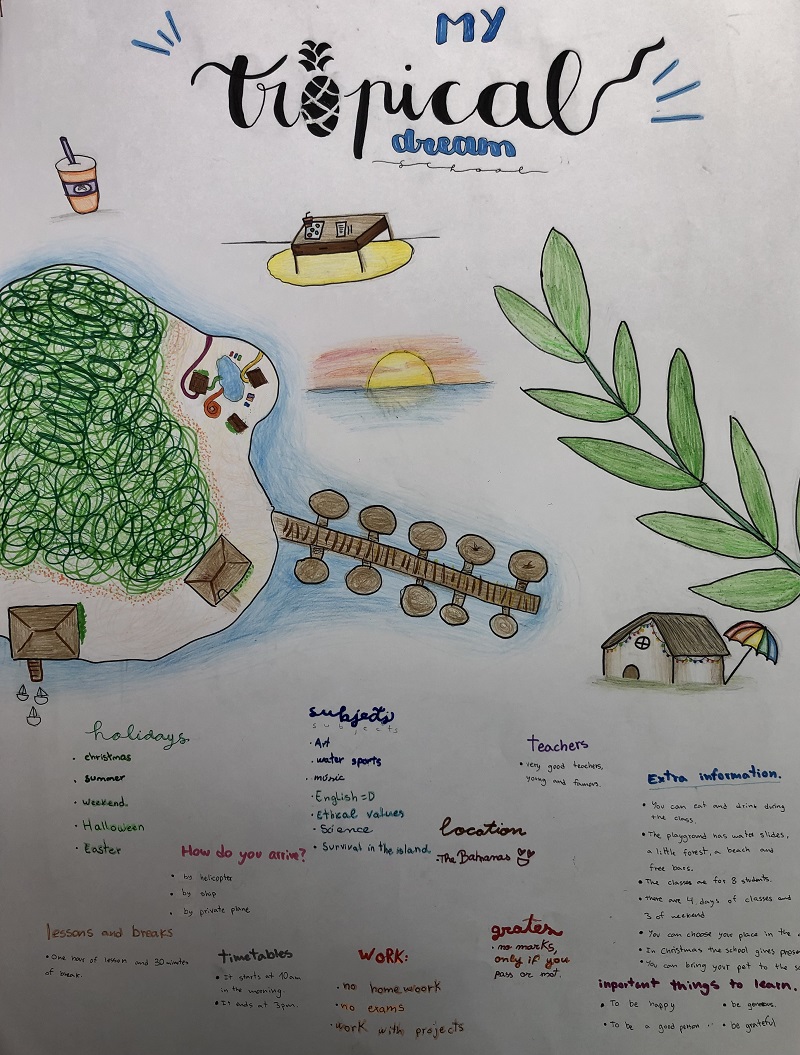 MY
tropical
dream
school
holidays
· christmas
· summer
· weekend.
· Halloween
· Easter
subjects
subjects
· Art
· water sports
· music
· English =D
· Ethical values
· Science
· Survival in the island.
Teachers
• very good teachers,
young and famous.
location
·The Bahamas
How do you arrive?
• by helicopter
• by ship
• by private plane
lessons and breaks
• One hour of lesson and 30 minutes
of break.
timetables
• It starts at 10am
in the morning.
• It ends at 3pm.
WORK:
· no homework
· no exams
· work with projects
grates
• no marks,
only if you
pass or not.
Extra information.
• You can eat and drink during
the class.
• The playground has water slides,
a little forest, a beach and
free bars.
• The classes are for 8 students.
• There are 4 days of classes and
3 of weekend
• You can choose your place in the
• In Christmas the school gives
• You can bring your pet to the
inportant things to learn.
• To be happy
• be generous.
• To be a good person
• be grateful